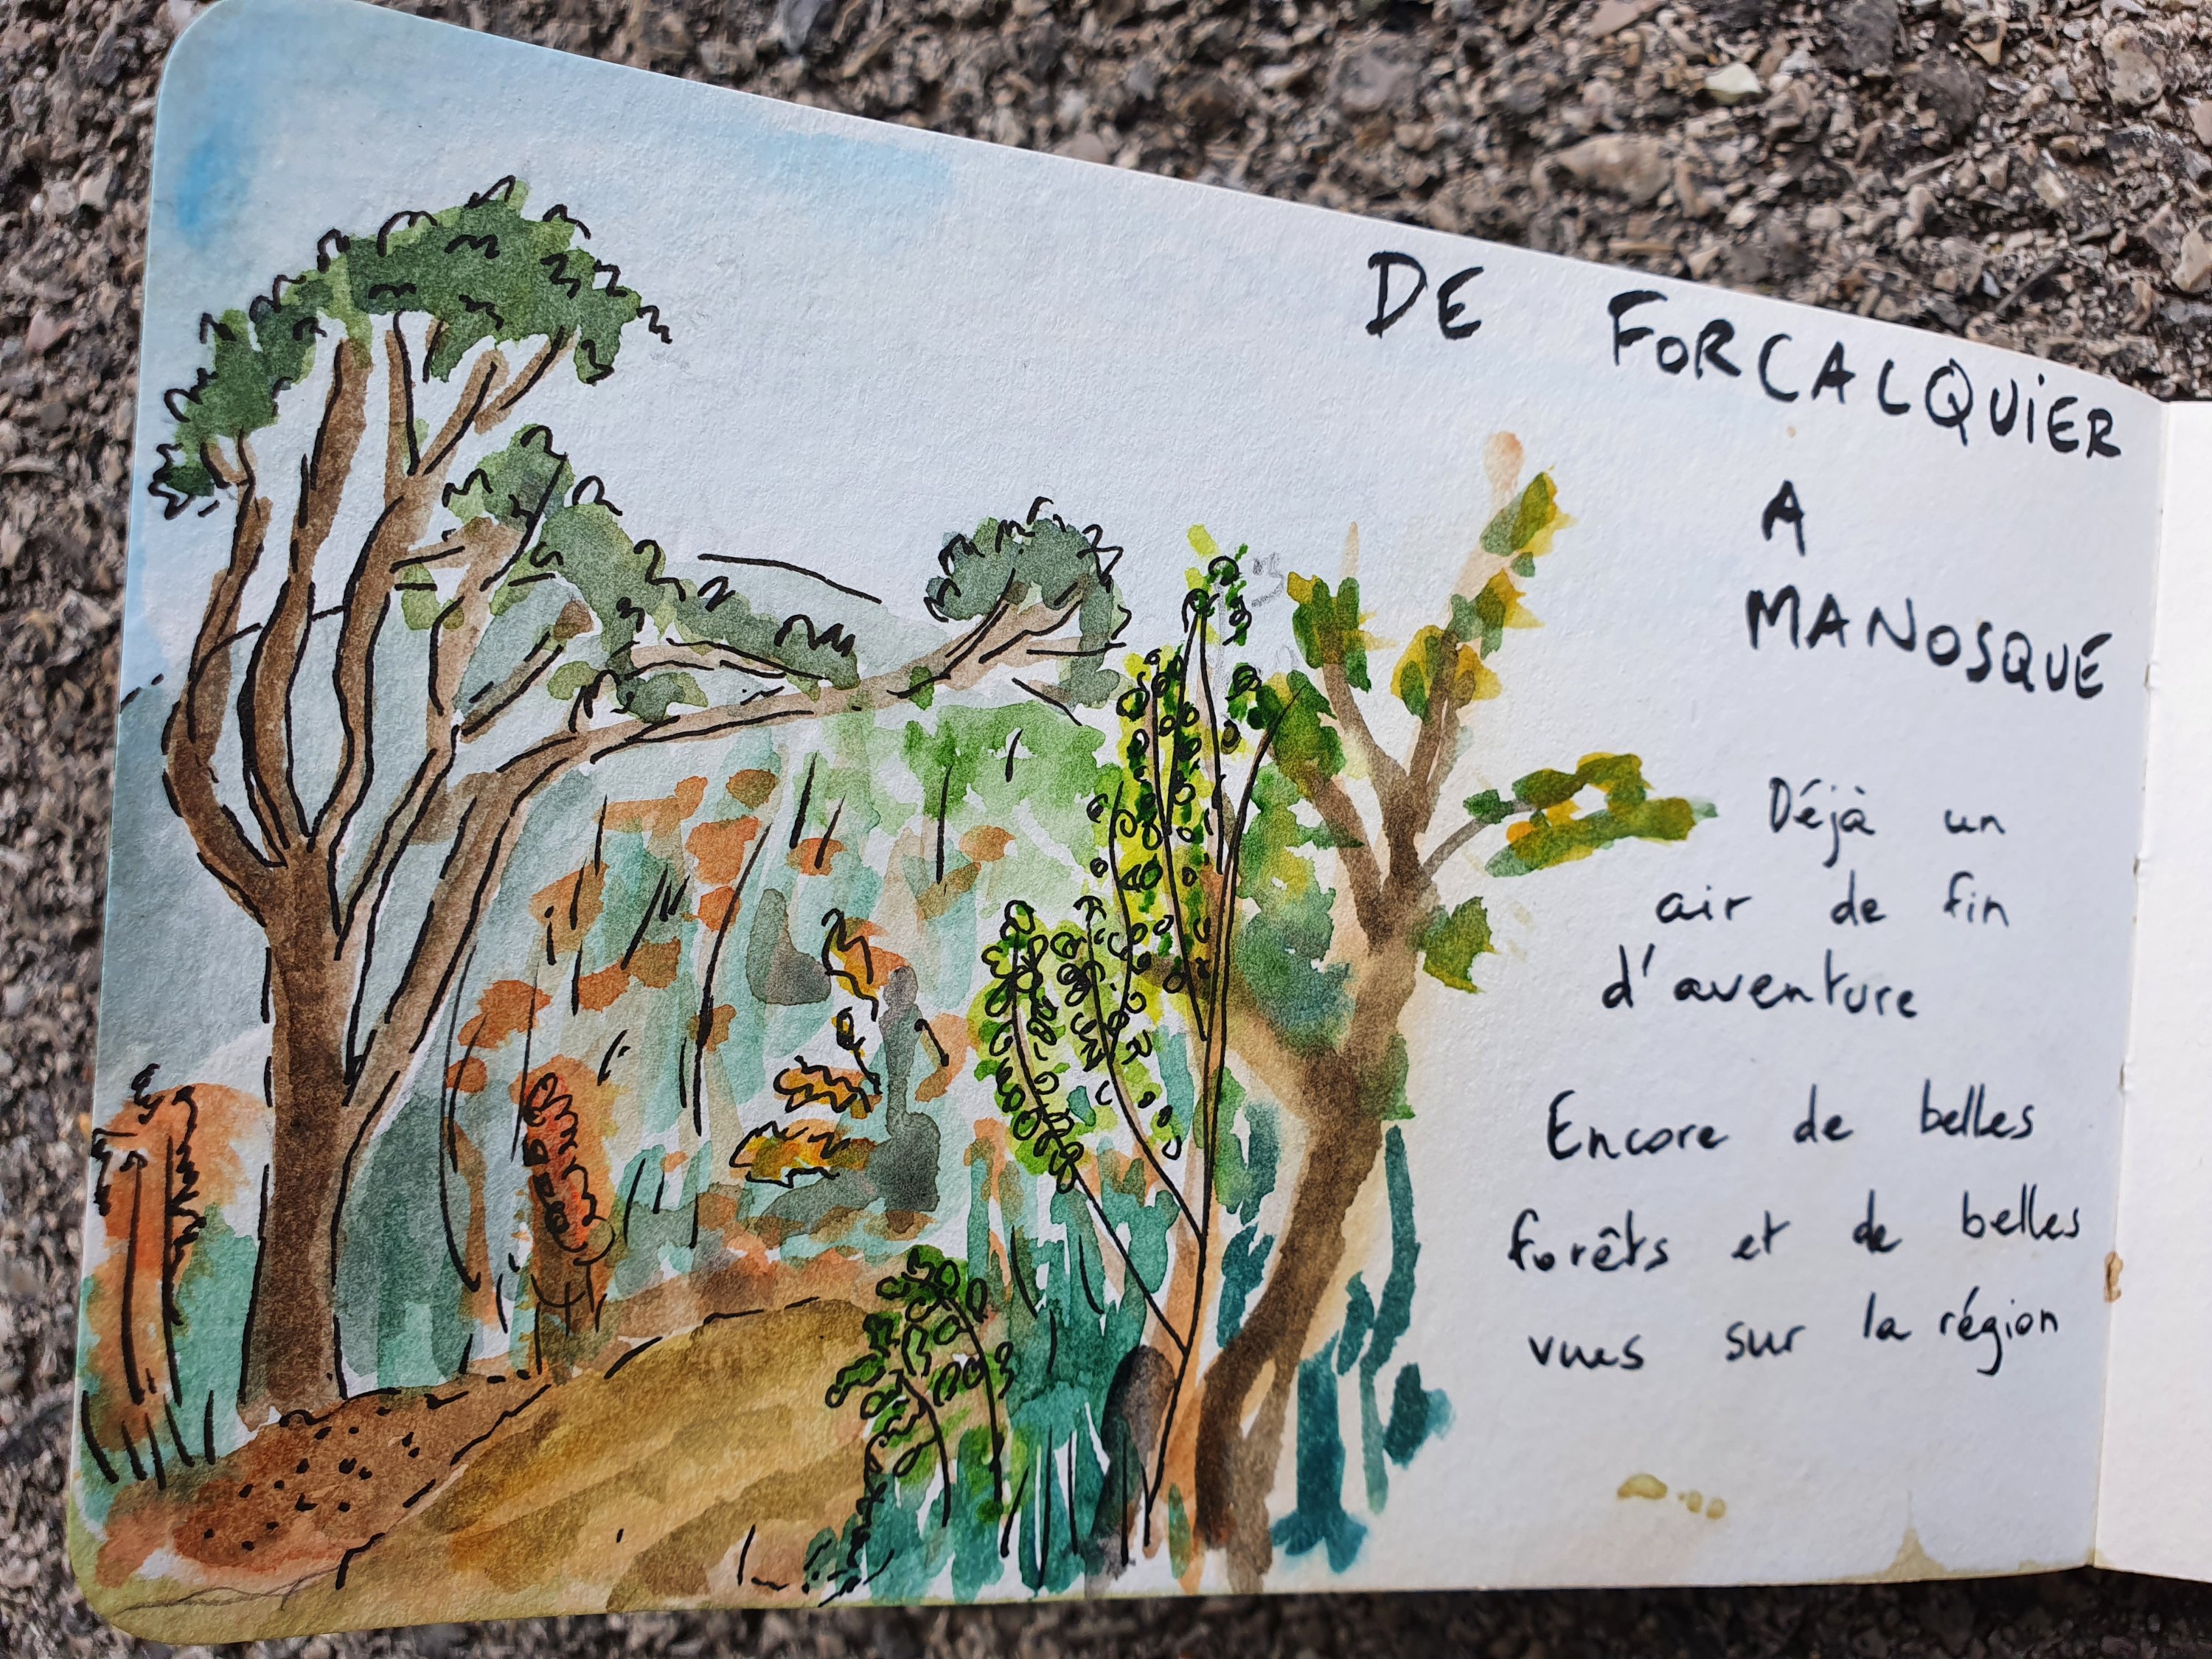 DE FORCALQUIER
A
MANOSQUE
Déjà un
air de fin
d'aventure
Encore de belles
forêts et de belles
vues sur la région